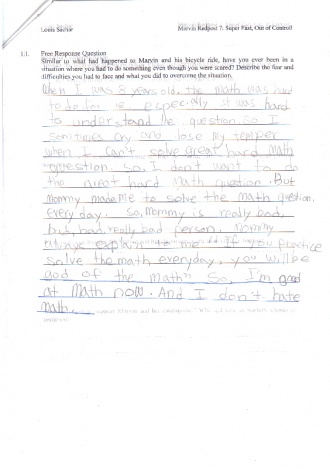 Louis Sachar Marvin Redpost 7: Super Fast, Out of Control!
1.1. Free Response Question
Similar to what had happened to Marvin and his bicycle ride, have you ever been in a
situation where you had to do something even though you were scared? Describe the fear and
difficulties you had to face and what you did to overcome the situation.
When I was 8 years old, the math was hard
to do for especially it was hard
to understand the question. So I
somtimes cry and lose my temper
when I can't solve great hard math
question. So, I don't want to do
the great hard math question. But
mommy made me to solve the math question.
every day. So, Mommy is really bad,
bad, bad, really bad person. Mommy
always explain to me "If you practice
solve the math everyday, you will be
god of the math" So, I'm good
at math now. And I don't hate
math.